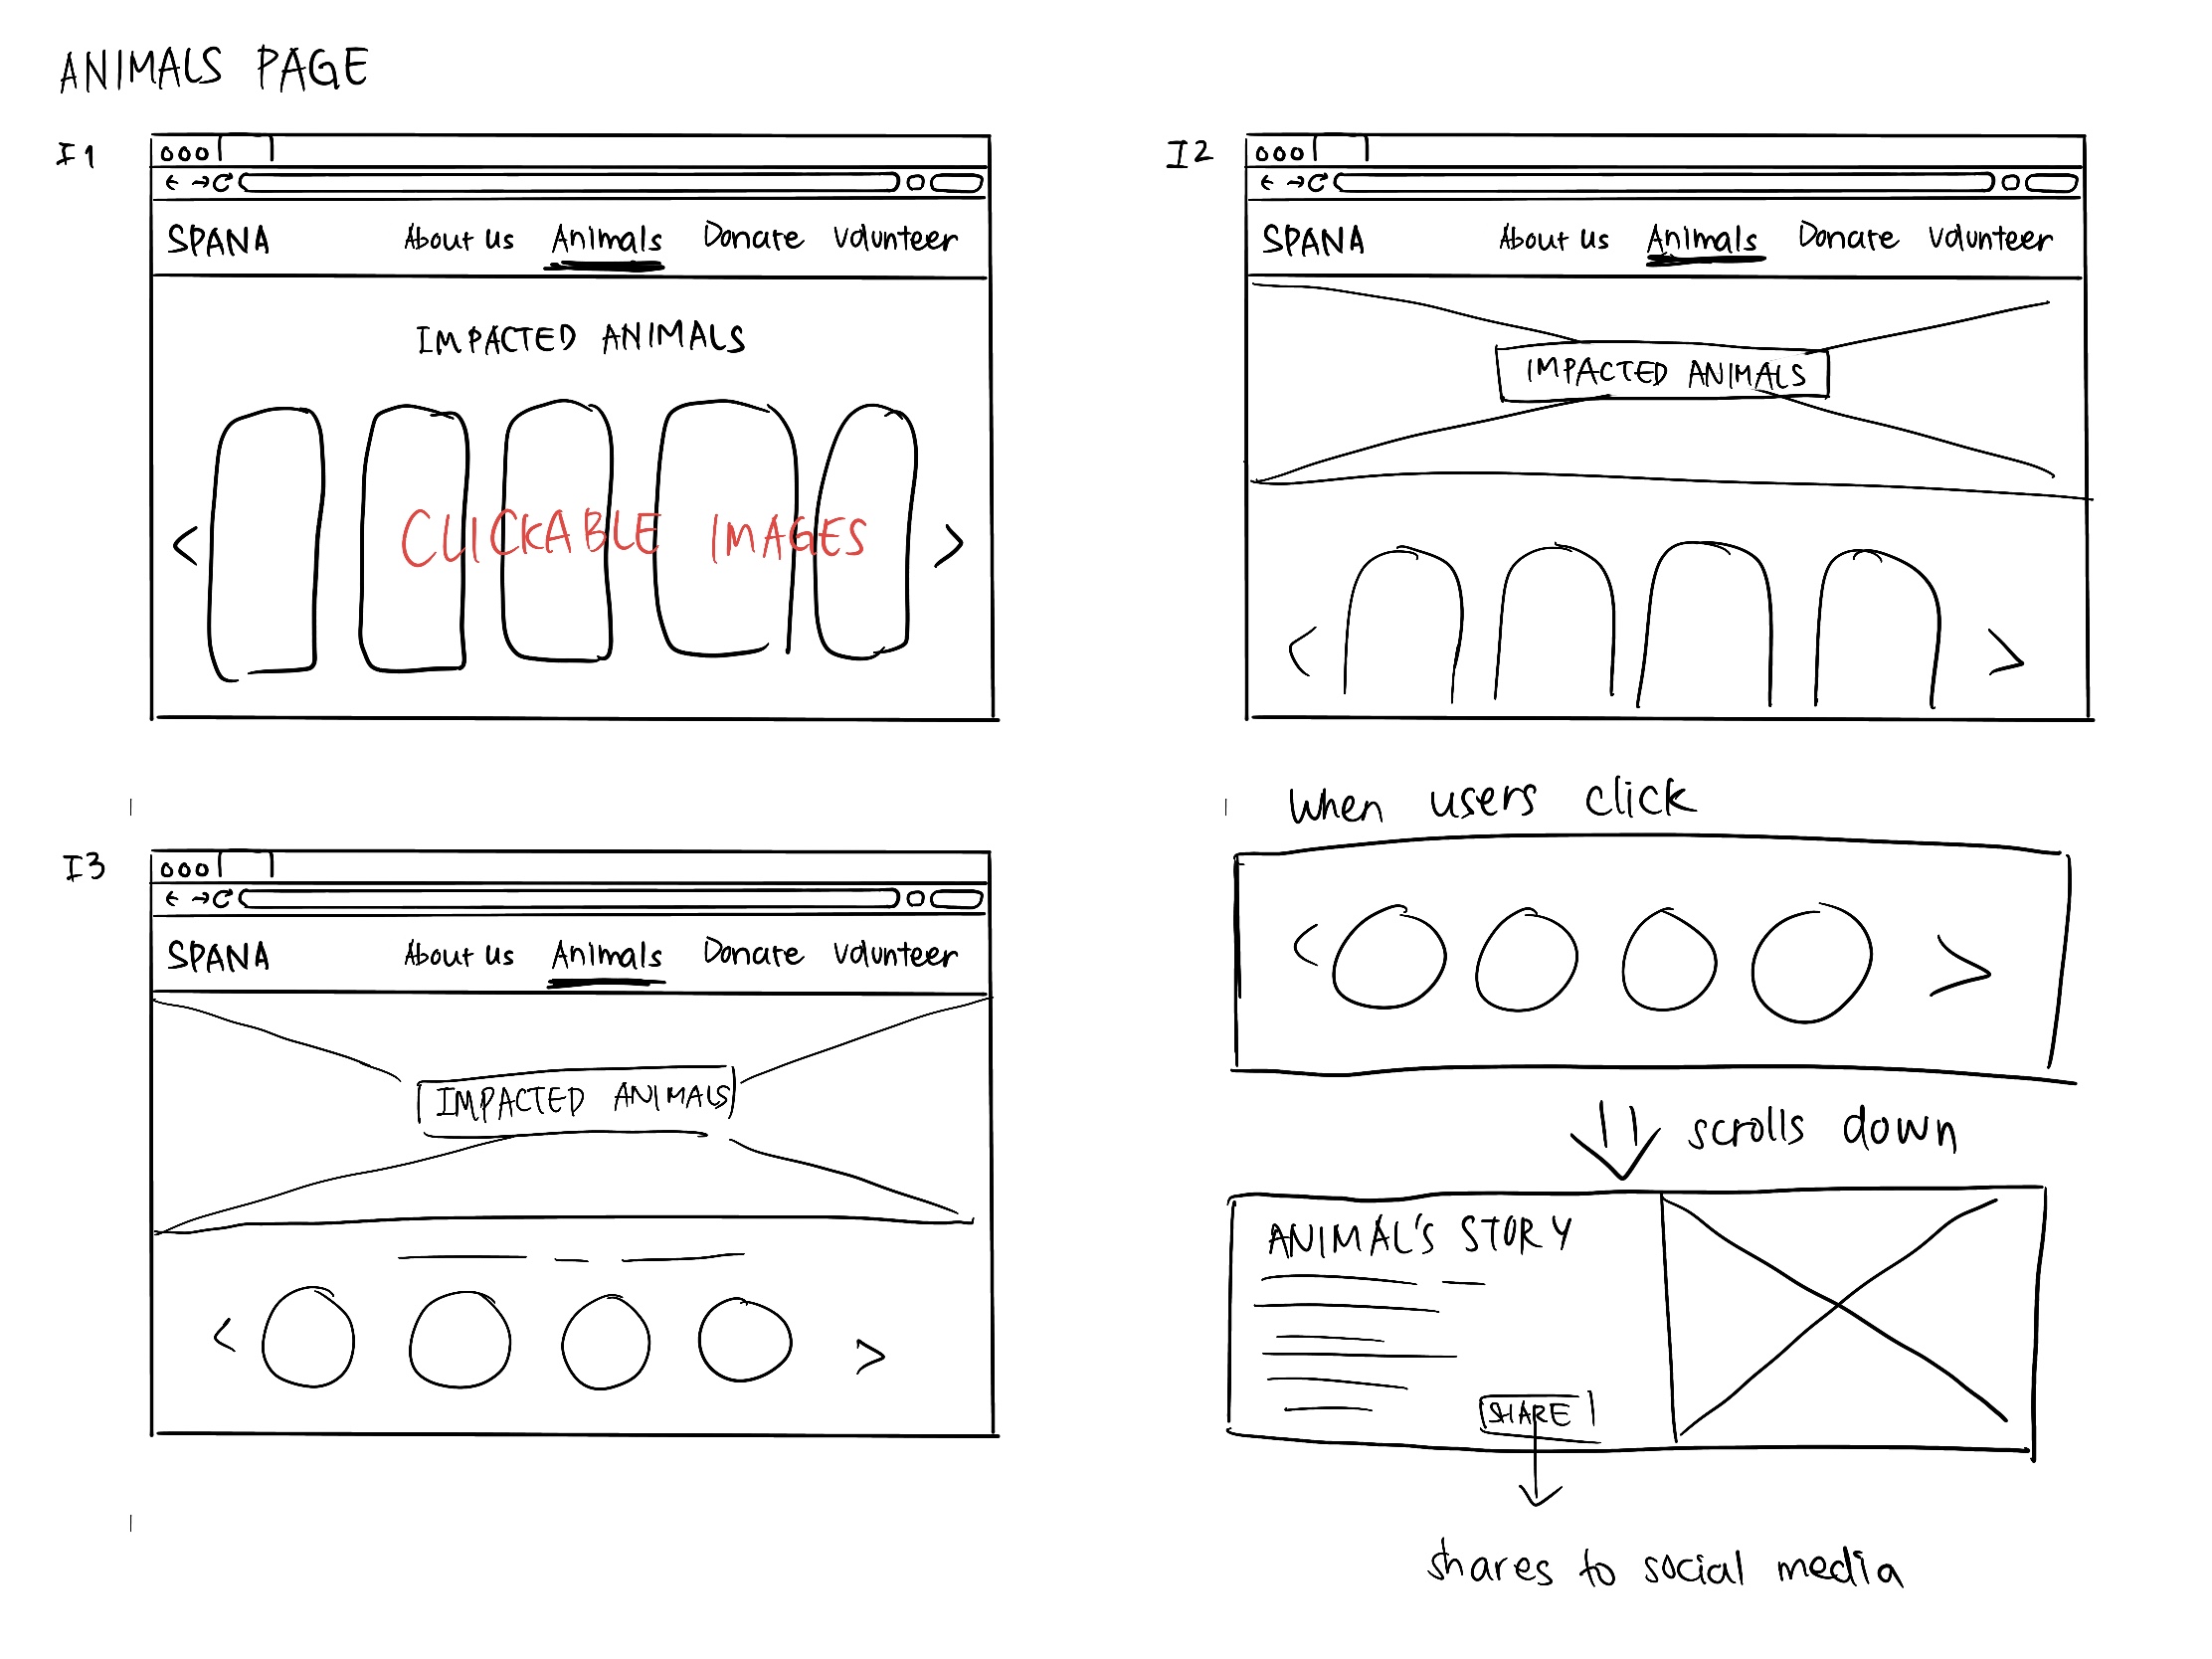 ANIMALS PAGE
I1
SPANA About Us Animals Donate Volunteer
IMPACTED ANIMALS
CLICKABLE IMAGES
I2
SPANA About Us Animals Donate Volunteer
IMPACTED ANIMALS
I3
SPANA About Us Animals Donate Volunteer
IMPACTED ANIMALS
when users click
scrolls down
ANIMAL'S STORY
SHARE
shares to social media